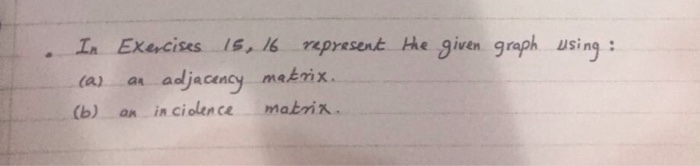 . In Exercises 15, 16 represent the given graph using :
(a) an adjacency matrix.
(b) an incidence matrix.